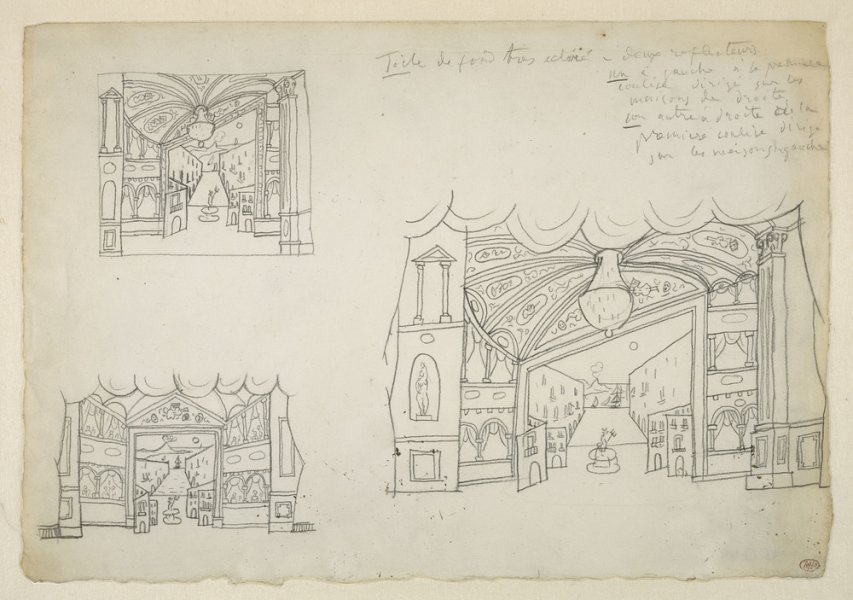 Toile de fond très éclairé - deux reflecteurs
un à gauche à la première
coulise dirigé sur les
maisons de droite
un autre à droite la
première coulise dirigé
sur les maisons gauche